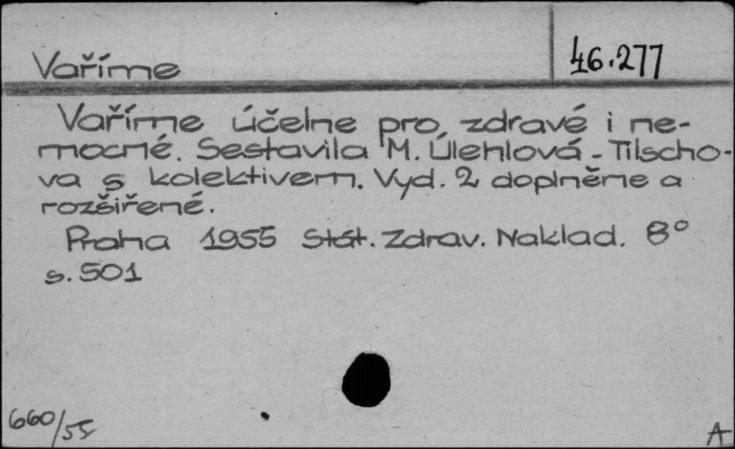 Vaříme
46.277
Vaříme účelne pro zdravé i ne-
mocné. Sestavila M. Úlehlová - Tilscho-
va s kolektivem. Vyd. 2 doplněne a
rozšířené.
Praha 1955 Stát. Zdrav. Naklad. 8°
s. 501
660/55
A